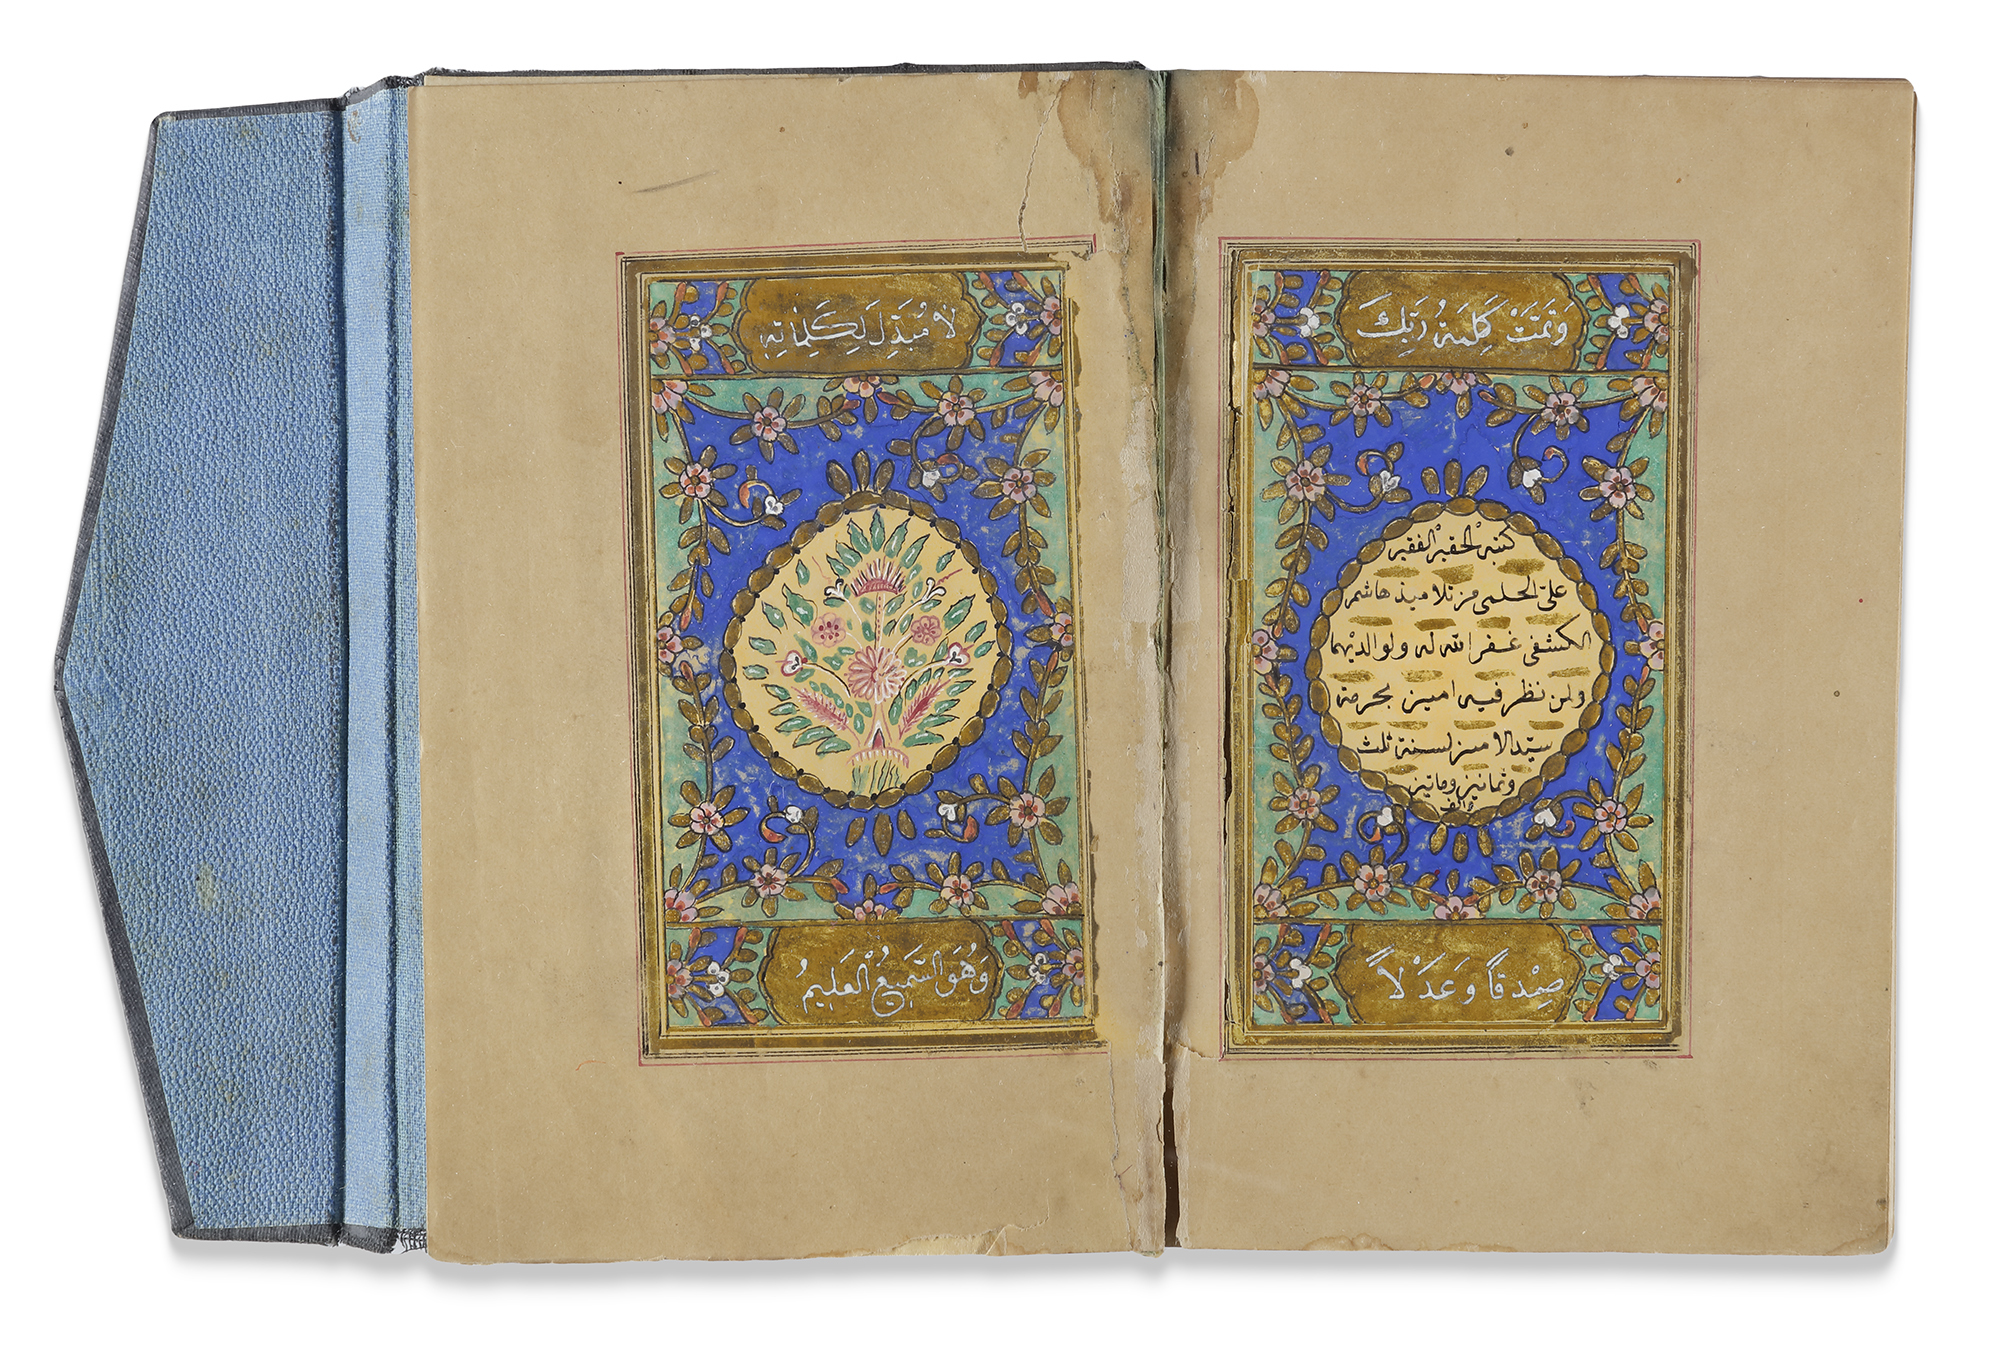 وَتَمَّتْ كَلِمَةُ رَبِّكَ
كتبه الحقير الفقير
علي الحلمي من تلاميذ هاشم
الكشفي غفر الله له ولوالديهما
ولمن نظر فيه امين بحرمة
سيّد الامين لسنة ثلث
وثمانين وماتين
والف
صِدْقًا وَعَدْلًا
لَا مُبَدِّلَ لِكَلِمَاتِهِ
وَهُوَ السَّمِيعُ الْعَلِيمُ